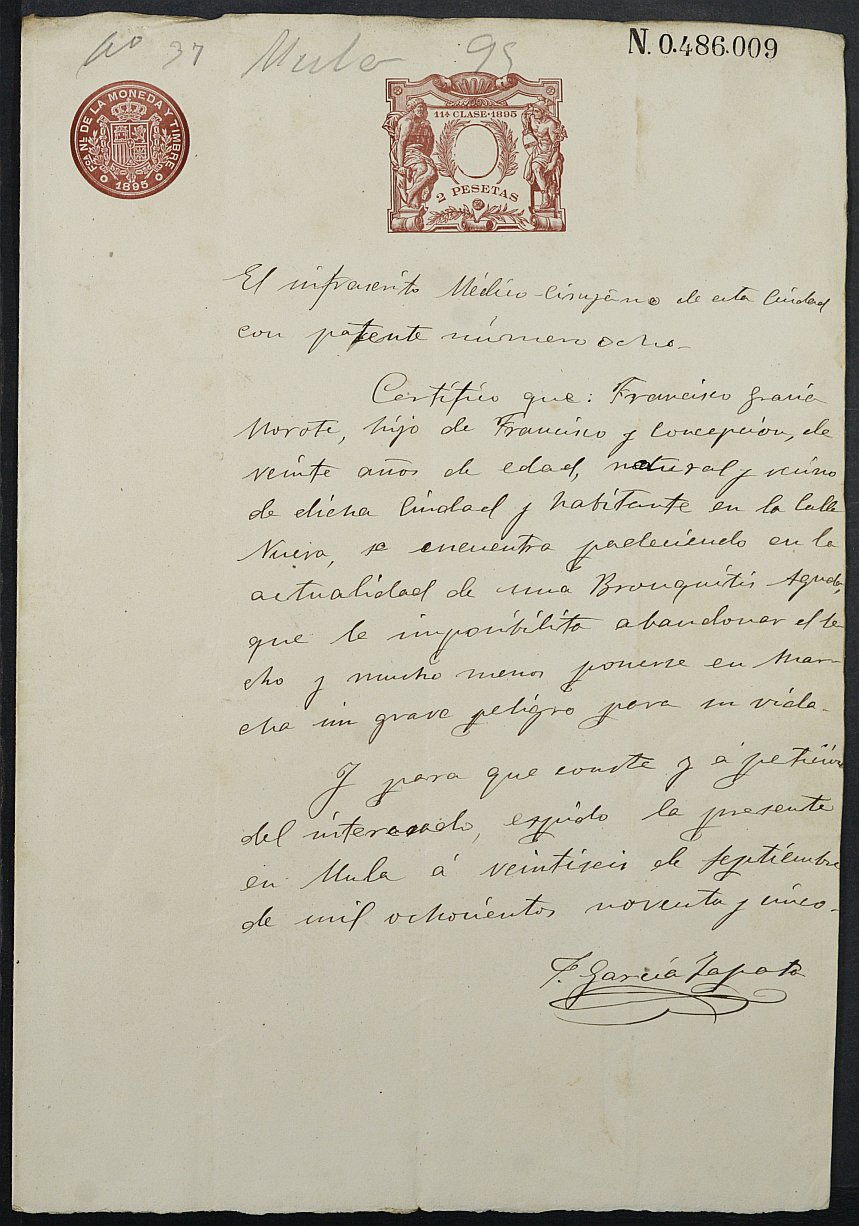 nº 37 Mula 95
N. 0.486.009
Fca. Nl. DE LA MONEDA Y TIMBRE
1895
11ª CLASE·1895
2 PESETAS
El infrascrito Médico-Cirujano de esta Ciudad
con patente número ocho-
Certifico que: Francisco García
Morote, hijo de Francisco y Concepcion, de
veinte años de edad, natural y vecino
de dicha Ciudad y habitante en la Calle
Nueva, se encuentra padeciendo en la
actualidad de una Bronquitis Aguda,
que le imposibilita abandonar el le
cho y mucho menos ponerse en mar-
cha sin grave peligro para su vida-
Y para que conste y á peticion
del interesado, espido la presente
en Mula á veintiseis de Septiembre
de mil ochocientos noventa y cinco-
F. García Zapata